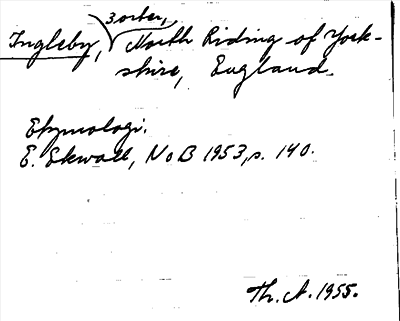 3 orter,
Ingleby, North Riding of York-
shire, England.
Etymologi.
E. Ekwall, NoB 1953, s. 140.
Th. A. 1955.